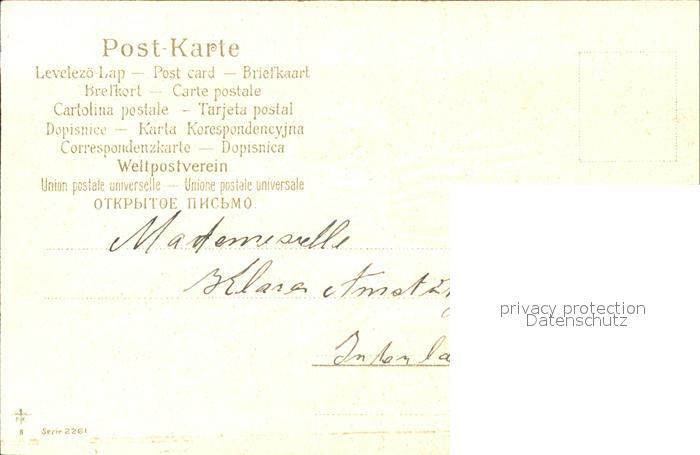 Post-Karte
Levelező-Lap — Post card — Briefkaart
Brefkort — Carte postale
Cartolina postale - Tarjeta postal
Dopisnice — Karta Korespondencyjna
Correspondenzkarte — Dopisnica
Weltpostverein
Union postale universelle — Unione postale universale
ОТКРЫТОЕ ПИСЬМО.
Mademoiselle
Klara
privacy protection
Datenschutz
8 Serie 2261